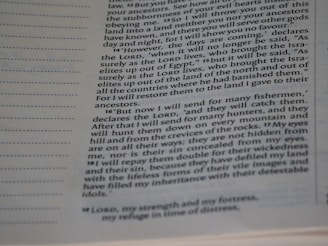 law. ¹² But you have
your ancestors. See how all of you are
the stubbornness of your evil hearts instead of
obeying me. ¹³ So I will throw you out of this
land into a land neither you nor your ancestors
have known, and there you will serve other gods
day and night, for I will show you no favor.'
¹⁴ "However, the days are coming," declares
the LORD, "when it will no longer be said, 'As
surely as the LORD lives, who brought the Isra-
elites up out of Egypt,' ¹⁵ but it will be said, 'As
surely as the LORD lives, who brought the Isra-
elites up out of the land of the north and out of
all the countries where he had banished them.'
For I will restore them to the land I gave to their
ancestors.
¹⁶ "But now I will send for many fishermen,"
declares the LORD, "and they will catch them.
After that I will send for many hunters, and they
will hunt them down on every mountain and
hill and from the crevices of the rocks. ¹⁷ My eyes
are on all their ways; they are not hidden from
me, nor is their sin concealed from my eyes.
¹⁸ I will repay them double for their wickedness
and their sin, because they have defiled my land
with the lifeless forms of their vile images and
have filled my inheritance with their detestable
idols."
¹⁹ LORD, my strength and my fortress,
my refuge in time of distress,